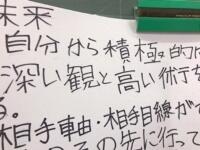 未来
自分から積極的
深い観と高い術を
る。
相手軸・相手目線が
の先に行って